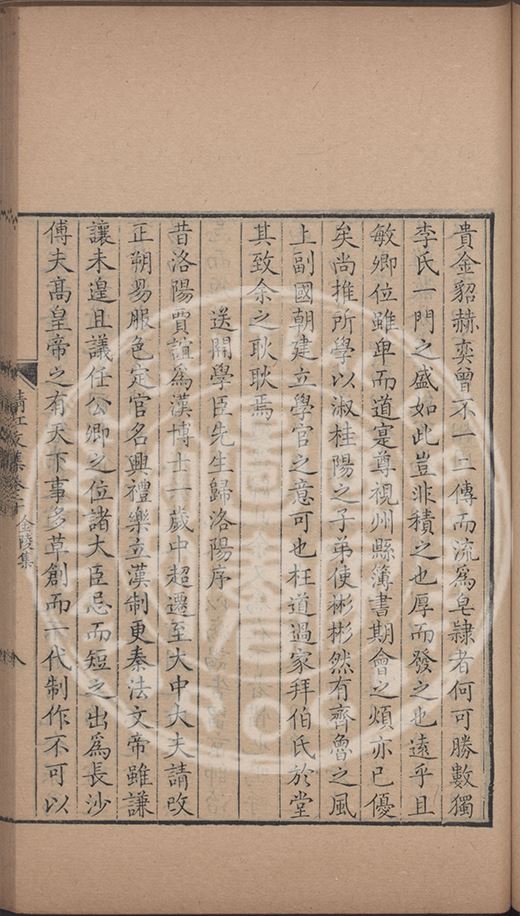 貴金貂赫奕曾不一二傳而流為皂隷者何可勝數獨
李氏一門之盛如此豈非積之也厚而發之也遠乎且
敏卿位雖卑而道寔尊視州縣簿書期會之煩亦已優
矣尚推所學以淑桂陽之子弟使彬彬然有齊魯之風
上副國朝建立學官之意可也枉道過家拜伯氏於堂
其致余之耿耿焉
送開學臣先生歸洛陽序
昔洛陽賈誼為漢博士一歲中超遷至大中大夫請改
正朔易服色定官名興禮樂立漢制更秦法文帝雖謙
讓未遑且議任公卿之位諸大臣忌而短之出為長沙
傅夫髙皇帝之有天下事多草創而一代制作不可以
清江文集卷二十 金陵集